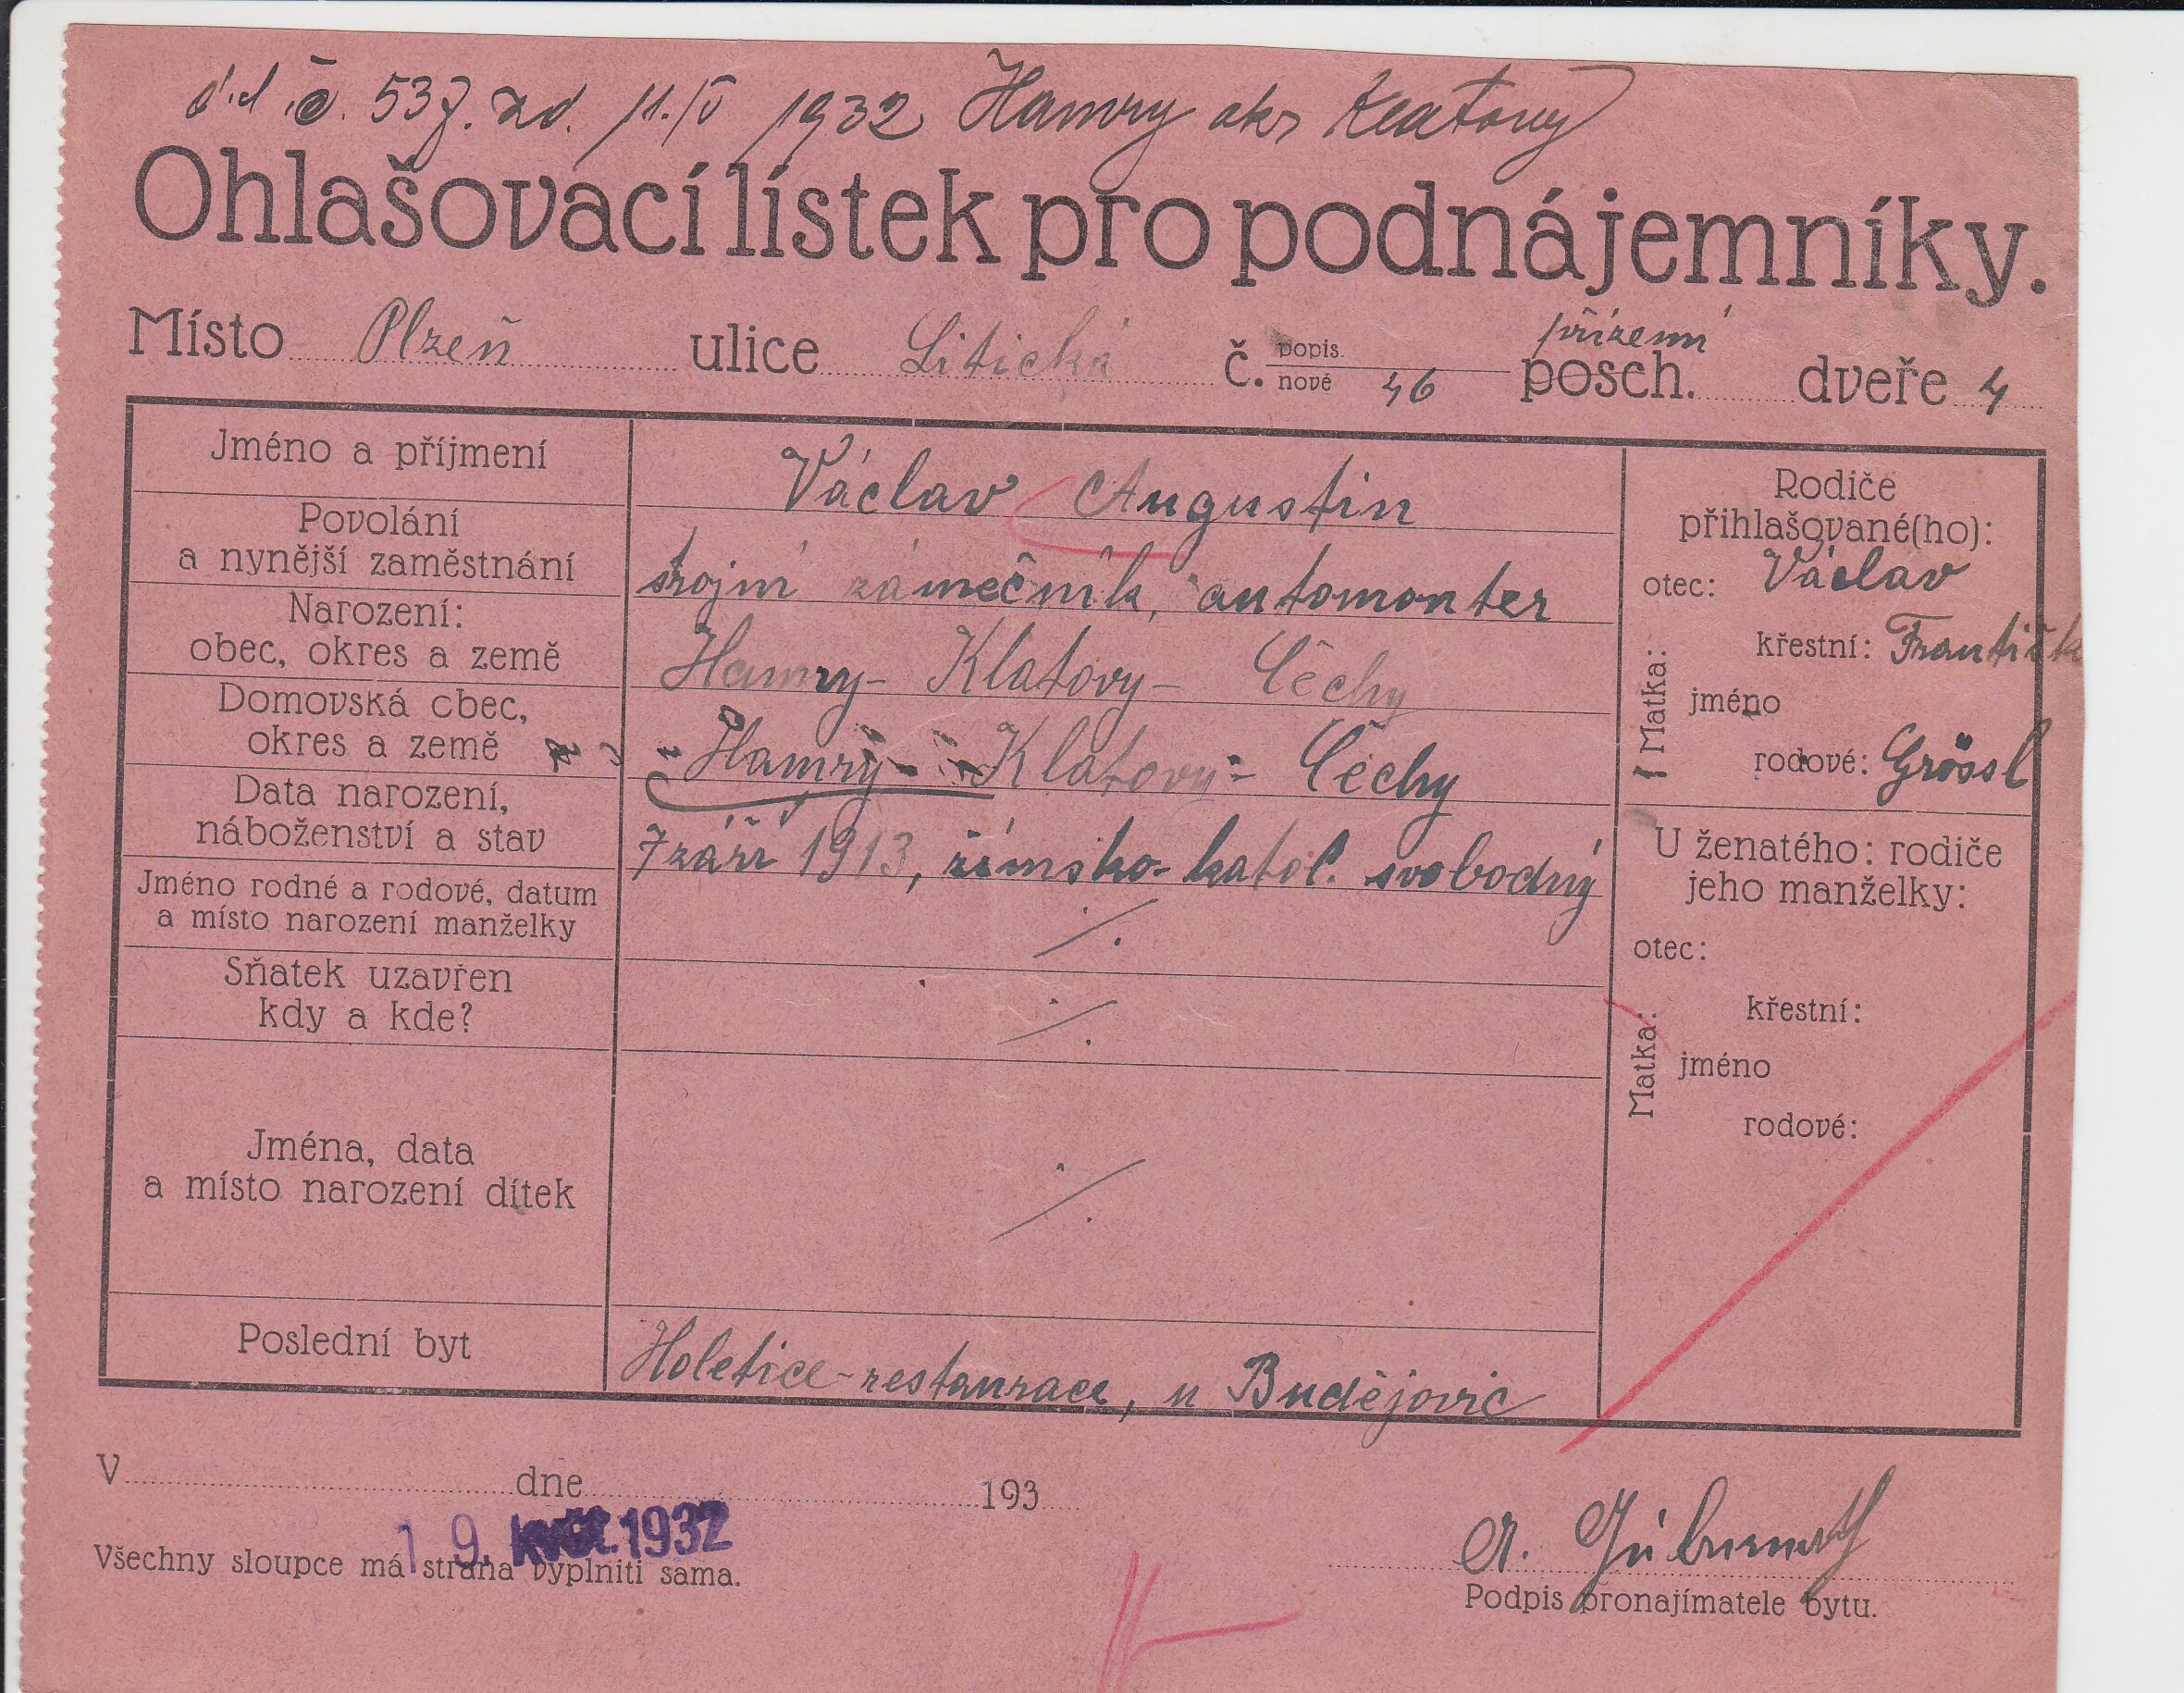 č. 537. zd. 11./V 1932 Hamry okr Klatovy
Ohlašovací lístek pro podnájemníky.
Místo Plzeň ulice Litická č. popis. nové 46 přízemí posch. dveře 4
Jméno a příjmení Václav Augustin
Povolání
a nynější zaměstnání strojní zámečník, automonter
Narození:
obec, okres a země Hamry - Klatovy - Čechy
Domovská obec,
okres a země Hamry - Klatovy - Čechy
Data narození,
náboženství a stav 7 září 1913, římsko-katol. svobodný
Jméno rodné a rodové, datum
a místo narození manželky ·/.
Sňatek uzavřen
kdy a kde? ·/.
Jména, data
a místo narození dítek ·/.
Poslední byt Holetice - restaurace, u Budějovic
Rodiče
přihlašované(ho):
otec: Václav
Matka:
křestní: Františk
jméno
rodové: Grössl
U ženatého: rodiče
jeho manželky:
otec:
Matka:
křestní:
jméno
rodové:
V dne 193
19. KVĚT. 1932
Všechny sloupce má strana vyplniti sama.
A.
Podpis pronajímatele bytu.